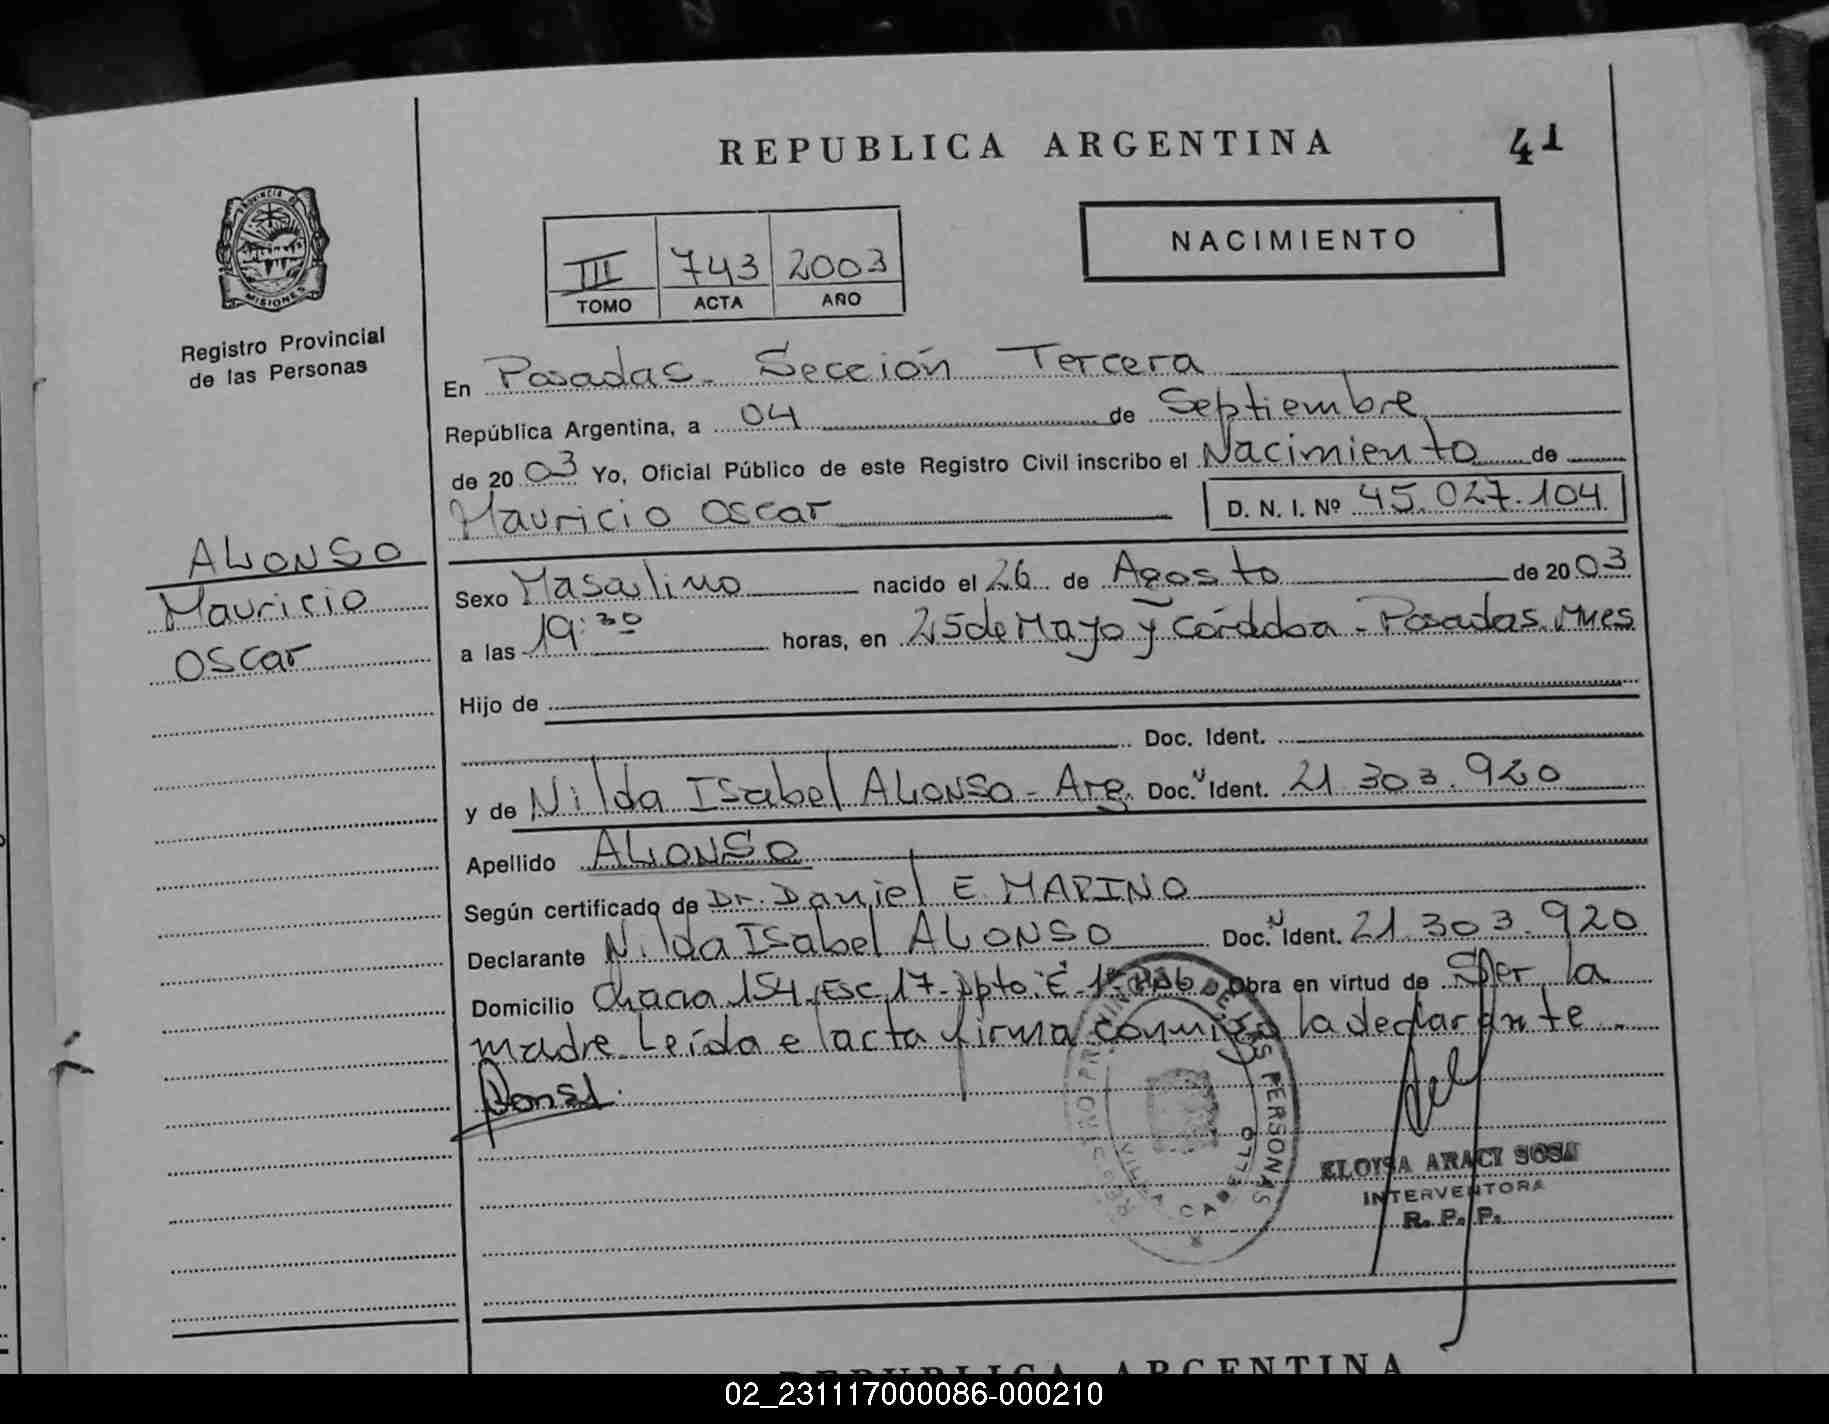 REPUBLICA ARGENTINA 41
PROVINCIA DE MISIONES
Registro Provincial
de las Personas
III 743 2003
TOMO ACTA AÑO
NACIMIENTO
En Posadas - Sección Tercera
República Argentina, a 04 de Septiembre
de 2003 Yo, Oficial Público de este Registro Civil inscribo el Nacimiento de
Mauricio Oscar D. N. I. Nº 45.027.104
ALONSO
Mauricio
Oscar
Sexo Masculino nacido el 26 de Agosto de 2003
a las 19:30 horas, en 25 de Mayo y Córdoba - Posadas. Mnes
Hijo de
Doc. Ident.
y de Nilda Isabel ALONSO - Arg. Doc. N Ident. 21.303.920
Apellido ALONSO
Según certificado de Dr. Daniel E. MARINO
Declarante Nilda Isabel ALONSO Doc. N Ident. 21.303.920
Domicilio Chacra 154, Esc. 17 - Dpto. "E" - 1º Obra en virtud de Ser la
madre. Leída el acta firma conmigo la declarante.
DE LAS PERSONAS
ELOYSA ARACI SOSA
INTERVENTORA
R. P. P.
REPUBLICA ARGENTINA
02_231117000086-000210